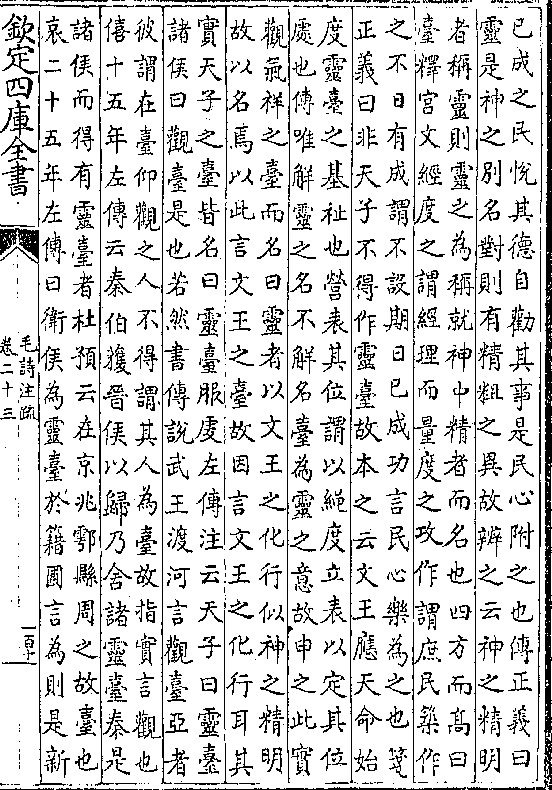 已成之民悅其德自勸其事是民心附之也傳正義曰
靈是神之別名對則有精粗之異故辨之云神之精明
者稱靈則靈之為稱就神中精者而名也四方而髙曰
臺釋宫文經度之謂經理而量度之攻作謂庶民築作
之不日有成謂不設期日已成功言民心樂為之也箋
正義曰非天子不得作靈臺故本之云文王應天命始
度靈臺之基祉也營表其位謂以繩度立表以定其位
處也傳唯解靈之名不解名臺為靈之意故申之此實
觀氣祥之臺而名曰靈者以文王之化行似神之精明
故以名焉以此言文王之臺故因言文王之化行耳其
實天子之臺皆名曰靈臺服䖍左傳注云天子曰靈臺
諸侯曰觀臺是也若然書傳說武王渡河言觀臺亞者
彼謂在臺仰觀之人不得謂其人為臺故指實言觀也
僖十五年左傳云秦伯獲晉侯以歸乃舍諸靈臺秦是
諸侯而得有靈臺者杜預云在京兆鄠縣周之故臺也
哀二十五年左傳曰衛侯為靈臺於籍圃言為則是新
欽定四庫全書
毛詩注疏
卷二十三